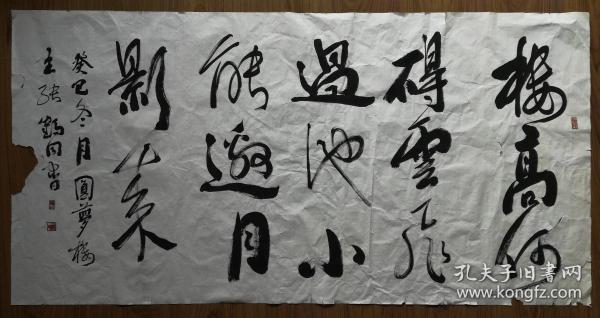 樓高何
碍雲飛
過池小
能邀月
影來
癸巳冬月圓夢樓
主張鶴同書
孔夫子旧书网
www.kongfz.com